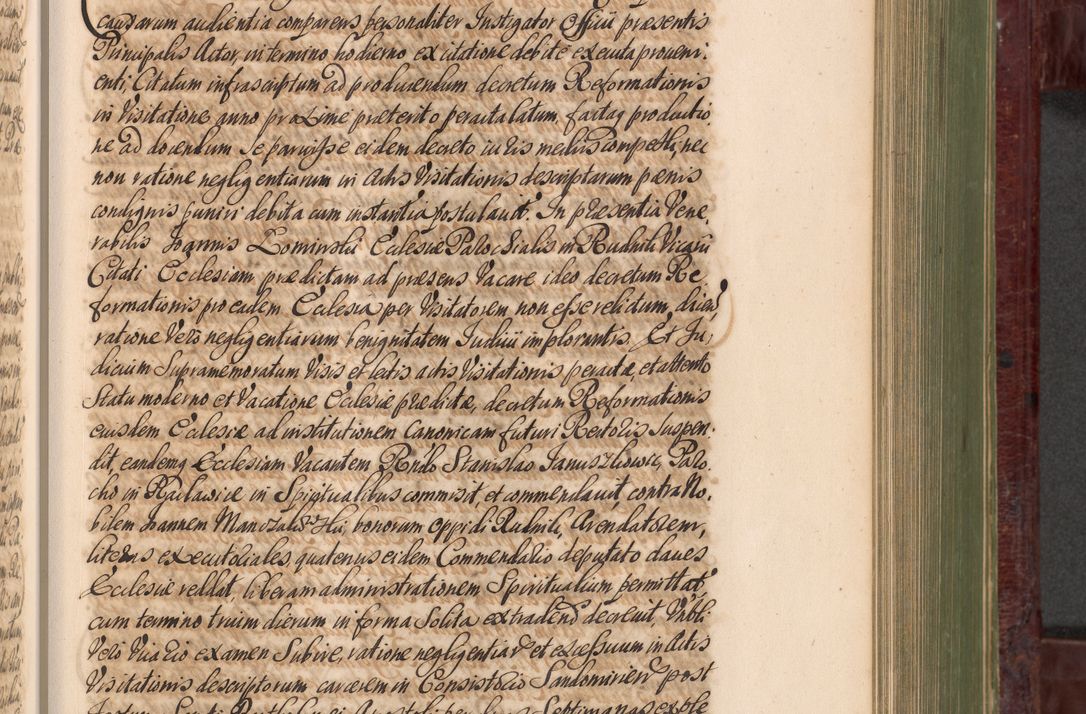 causarum audientia comparens personaliter Instigator Officii præsentis
Principalis Actor, in termino hodierno ex citatione debite executa proveni-
enti, Citatum infrascriptum ad producendum decretum Reformationis
in Visitatione anno proxime præterito peracta latum, factaq productio
ne ad docendum Se paruisse eidem decreto iuris mediis compelli, nec
non ratione negligentiarum in Actis Visitationis descriptarum pænis
condignis puniri debita cum instantia postulavit. In præsentia Vene
rabilis Joannis Lominski Ecclesiæ Parochialis in Rudnik Vicarii
Citati Ecclesiam prædictam ad præsens Vacare ideo decretum Re
formationis pro eadem Ecclesia per Visitatorem non esse relictum, dicen
ratione Vero negligentiarum benignitatem Iudicii implorantis. Et Ju-
dicium Supramemoratum Visis et lectis actis Visitationis peractæ, et attento
Statu moderno et Vacatione Ecclesiæ prædictæ, decretum Reformationis
eiusdem Ecclesiæ ad institutionem Canonicam futuri Rectoris Suspen-
dit, eandemq Ecclesiam Vacantem Rndo Stanislao Januszkowic, Paro-
cho in Raclawice in Spiritualibus commisit, et commendavit, contra No-
bilem Joannem bonorum oppidi Rudnik, Arendatorem,
literas executoriales, quatenus eidem Commendario deputato claves
Ecclesiæ reddat, liberam administrationem Spiritualium permittat,
cum termino trium dierum in forma Solita extradend decrevit, Vnbli
Vero Vicario examen Subire, ratione negligentiar et excessuum in Actis
Visitationis descriptorum carcerem in Consistorio Sandomirien post
Festum Sancti Bartholomæi Apostoli per Septimanas exple